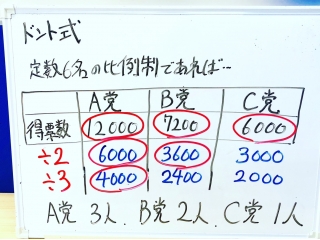 ドント式
定数6名の比例制であれば…
A党 B党 C党
得票数 12000 7200 6000
÷2 6000 3600 3000
÷3 4000 2400 2000
A党 3人、B党 2人、C党 1人